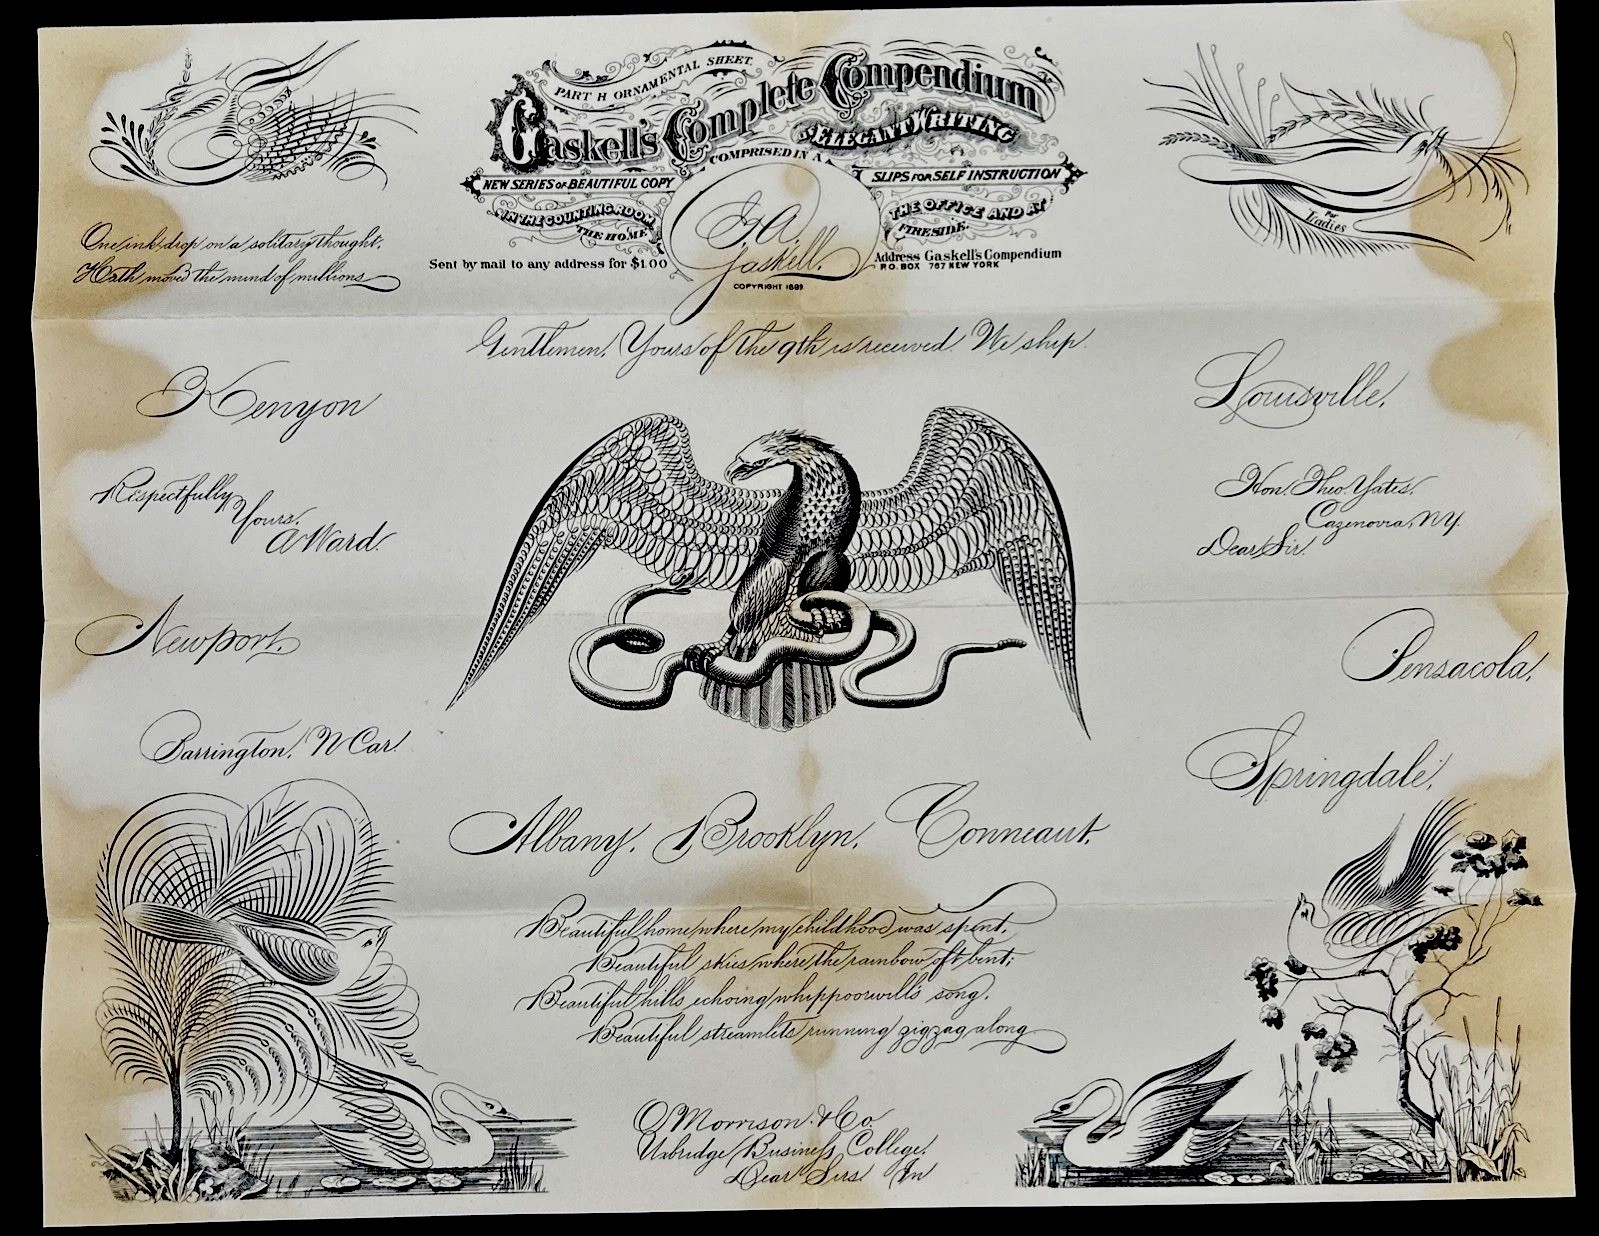 PART H ORNAMENTAL SHEET.
Gaskell's Complete Compendium
OF ELEGANT WRITING
COMPRISED IN A
NEW SERIES OF BEAUTIFUL COPY
SLIPS FOR SELF INSTRUCTION
IN THE COUNTING ROOM
THE OFFICE AND AT
THE HOME
FIRESIDE.
G. A.
Gaskell.
Sent by mail to any address for $1.00
Address Gaskell's Compendium
P.O. BOX 767 NEW YORK
COPYRIGHT 1883
For
Ladies
One ink drop on a solitary thought,
Hath moved the mind of millions
Gentlemen, Yours of the 9th is received. We ship
Kenyon
Louisville,
Respectfully
Yours,
A Ward.
Hon. Theo. Yates,
Cazenovia, N.Y.
Dear Sir.
Newport,
Pensacola,
Barrington, N Car.
Springdale,
Albany, Brooklyn, Conneaut,
Beautiful home where my childhood was spent,
Beautiful skies where the rainbow oft bent;
Beautiful hills echoing whippoorwill's song,
Beautiful streamlets running zigzag along
O Morrison & Co.
Uxbridge Business College.
Dear Sirs In